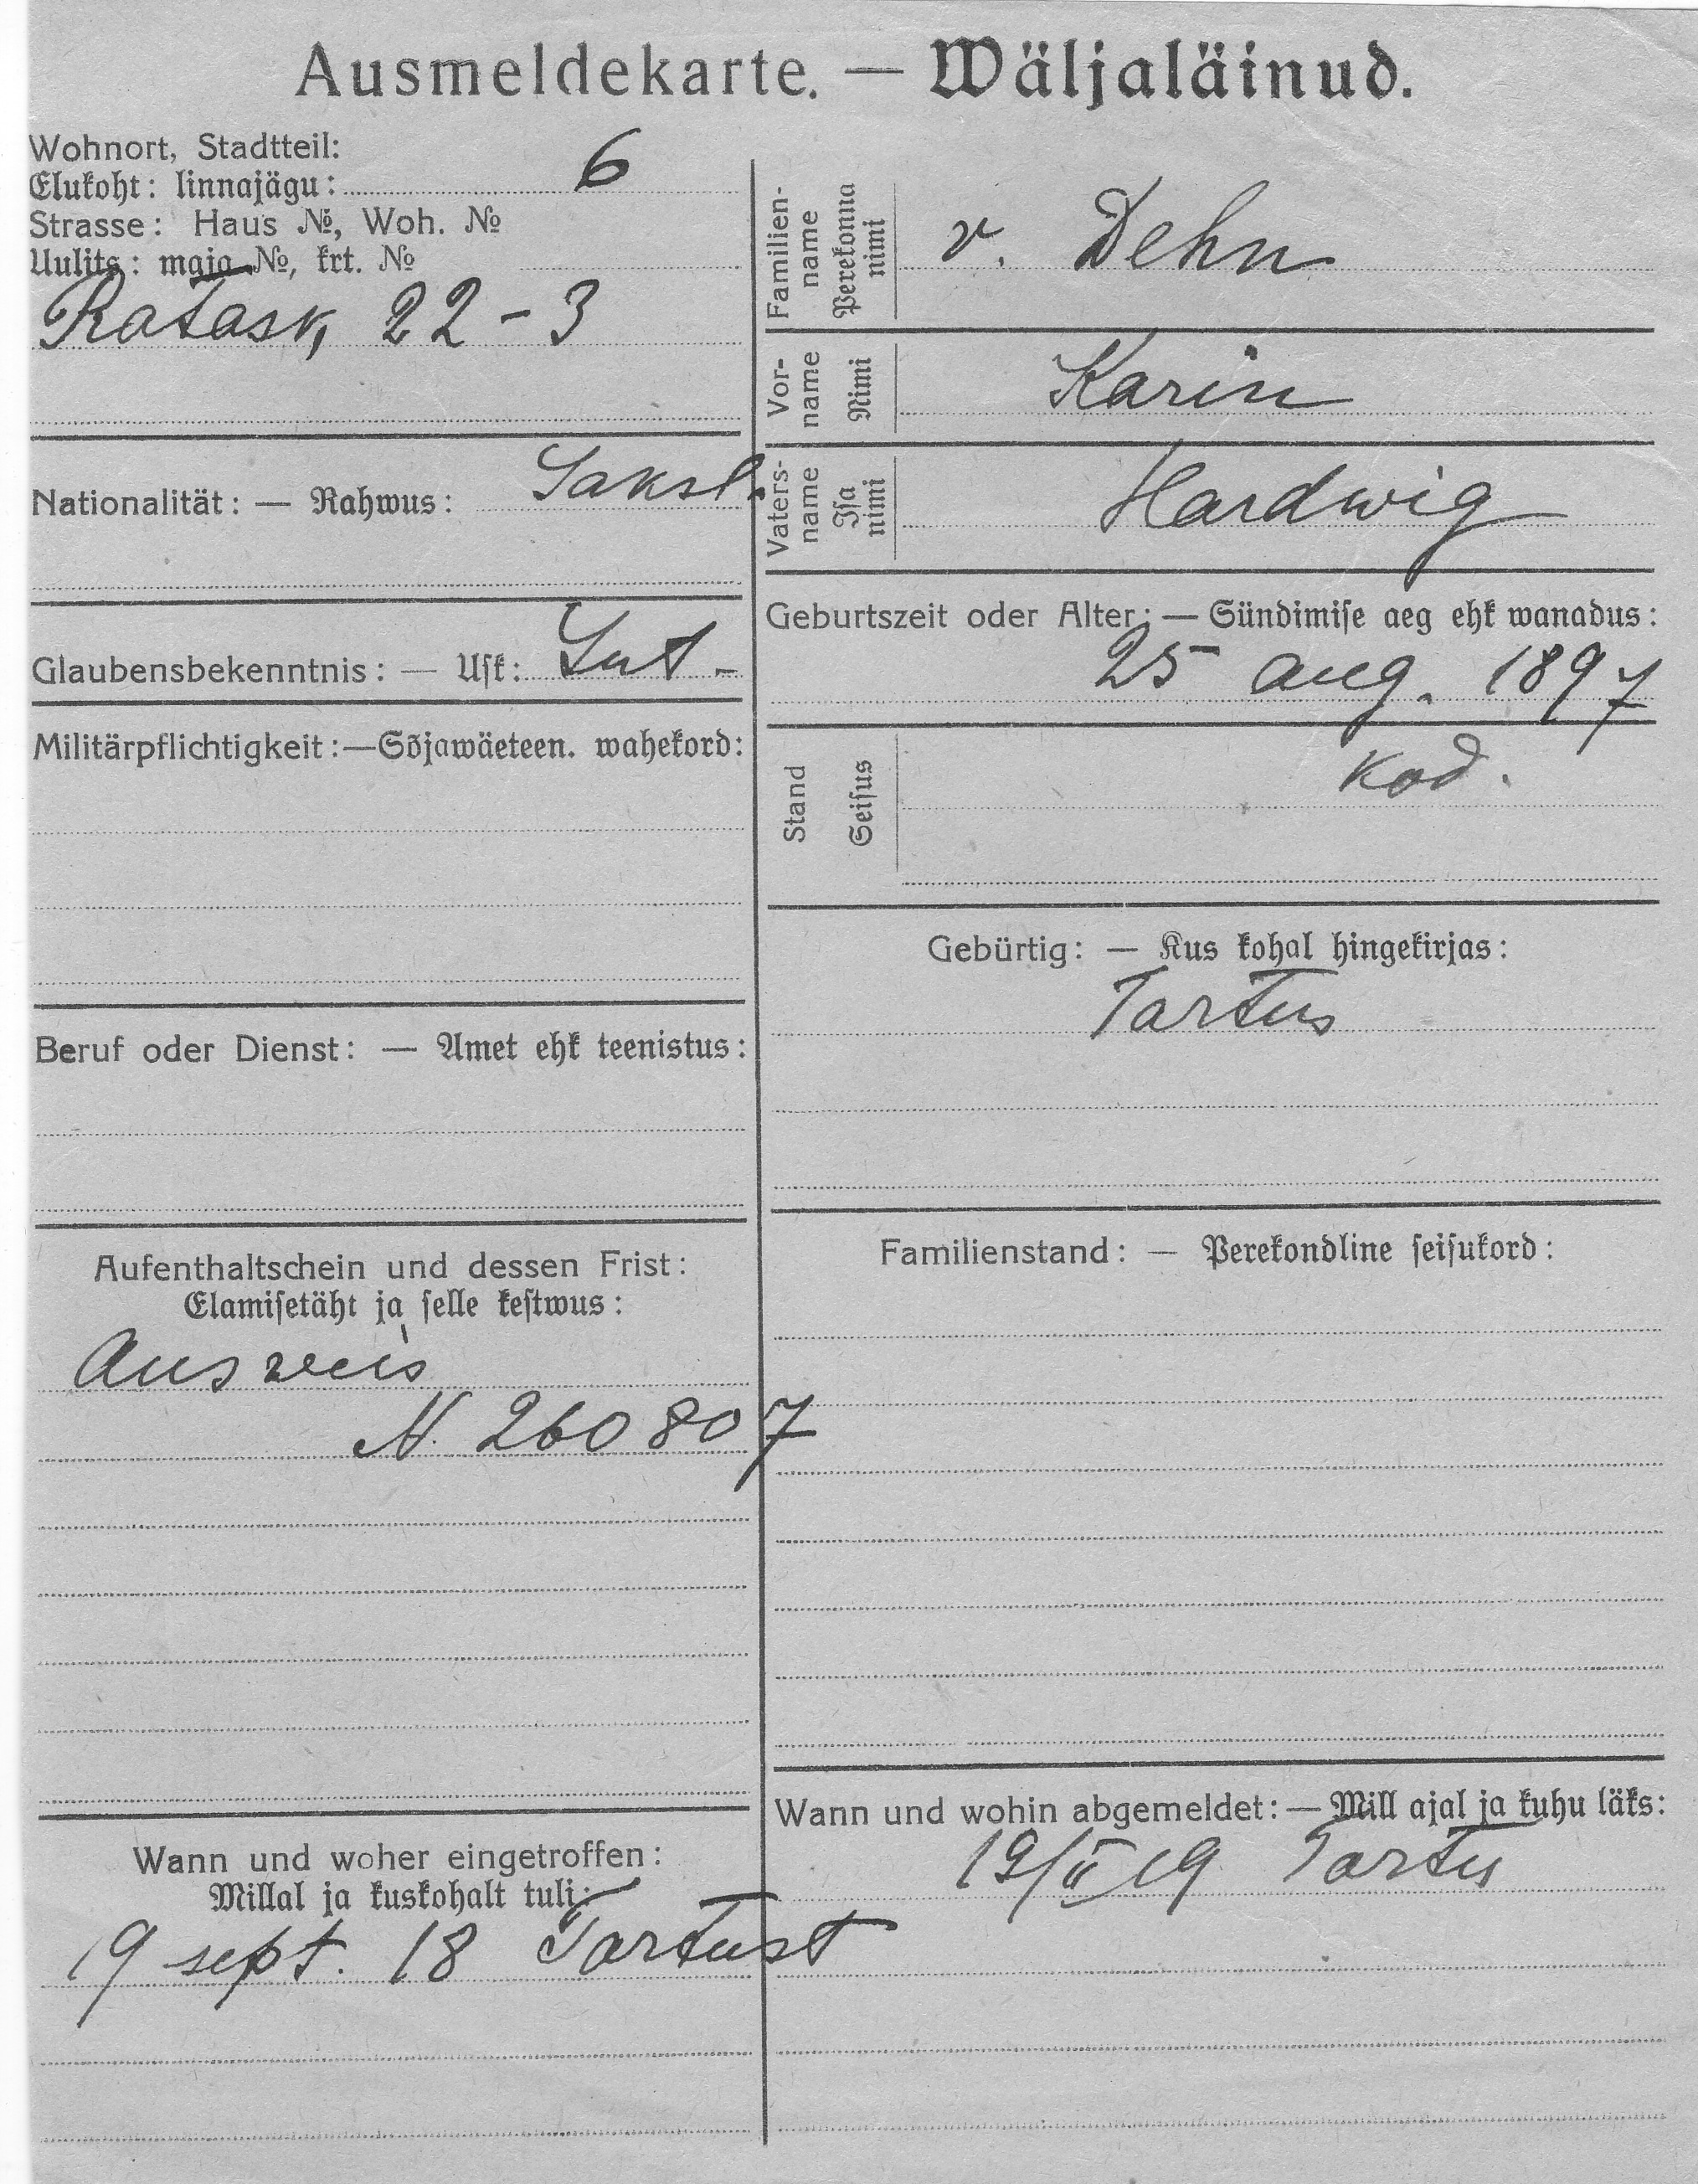 Ausmeldekarte. — Wäljaläinud.
Wohnort, Stadtteil:
Elukoht: linnajägu: 6
Strasse: Haus №, Woh. №
Uulits: maja №, krt. №
Ratask, 22 - 3
Nationalität: — Rahwus: Saksl.
Glaubensbekenntnis: — Usk: Lut -
Militärpflichtigkeit:—Sõjawäeteen. wahekord:
Beruf oder Dienst: — Amet ehk teenistus:
Aufenthaltschein und dessen Frist:
Elamisetäht ja selle kestwus:
Ausweis
N. 260807
Wann und woher eingetroffen:
Millal ja kuskohalt tuli:
19 sept. 18 Tartust
Familien-
name
Perekonna
nimi
v. Dehn
Vor-
name
Nimi
Karin
Vaters-
name
Isa
nimi
Hardwig
Geburtszeit oder Alter: — Sündimise aeg ehk wanadus:
25 aug. 1897
Stand
Seisus
Kod.
Gebürtig: — Kus kohal hingekirjas:
Tartus
Familienstand: — Perekondline seisukord:
Wann und wohin abgemeldet: — Mill ajal ja kuhu läks:
19/II 19 Tartu